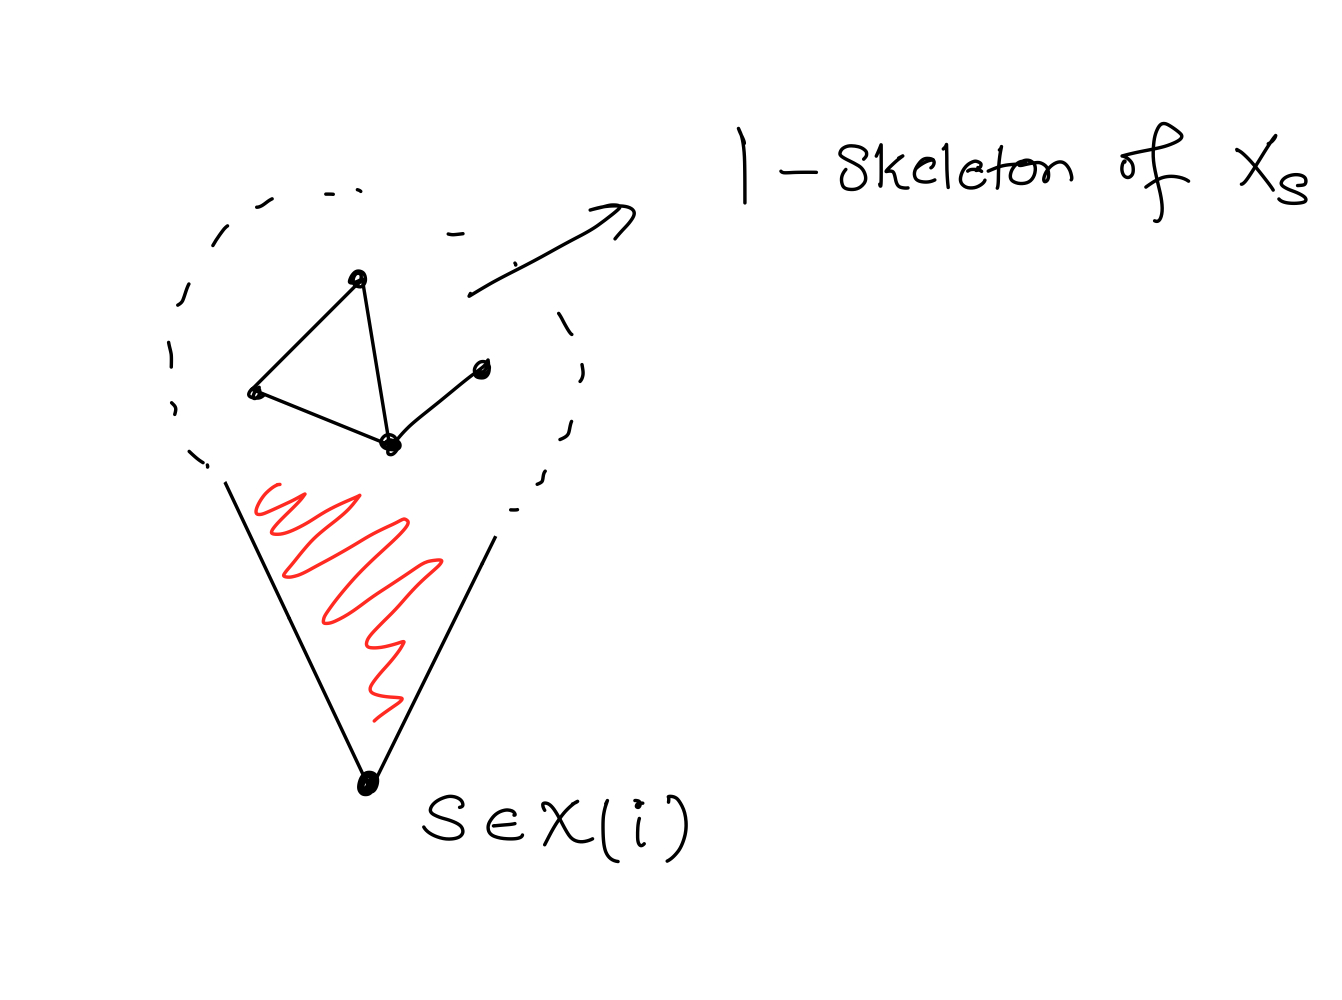 1-Skeleton of X_S
S ∈ X(i)